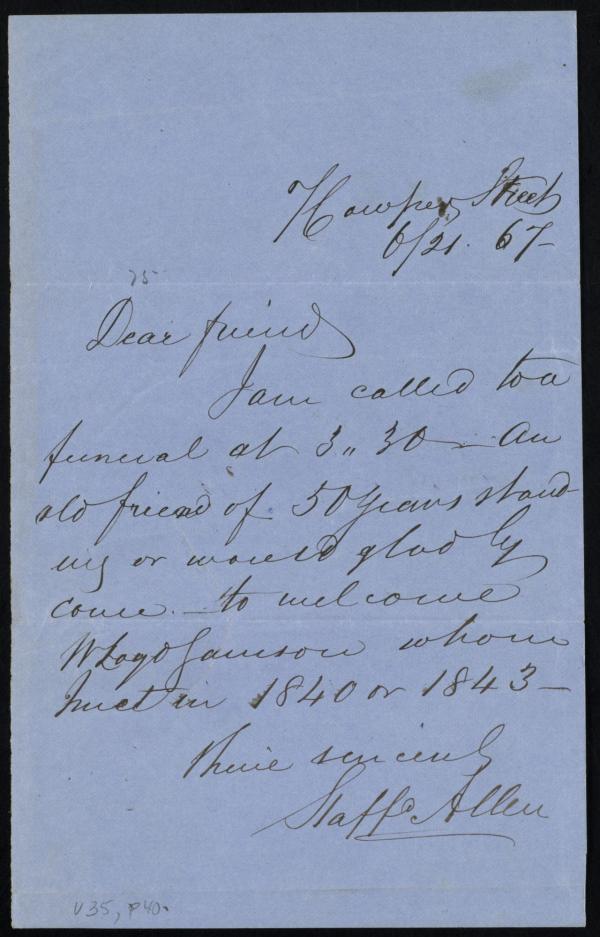 Cowper Street
6/21. 67-
25
Dear friend
I am called to a
funeral at 3,, 30 - An
old friend of 50 years stand
ing or would gladly
come. - to welcome
W Loyd Garrison whom
I met in 1840 or 1843 -
thine sincerely
Staffd Allen
V35, P40.